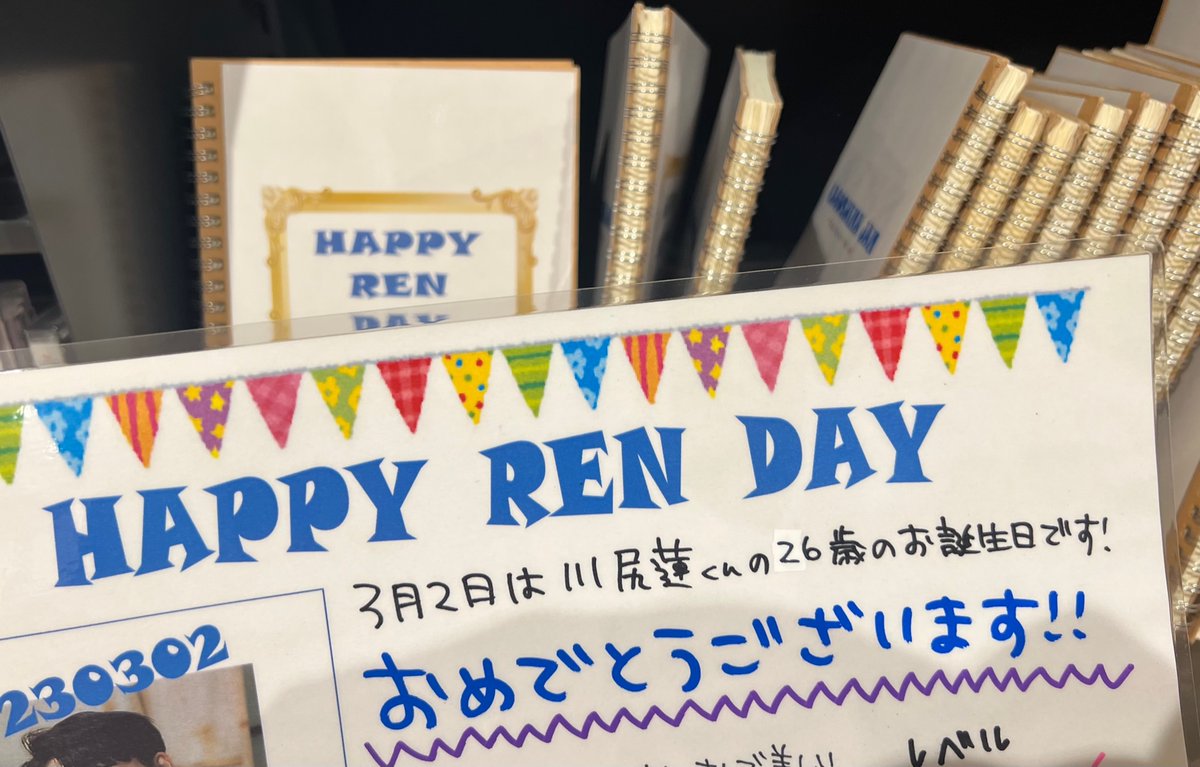 HAPPY
REN
DAY
HAPPY REN DAY
3月2日は川尻蓮くんの26歳のお誕生日です!
おめでとうございます!!
230302
レベル